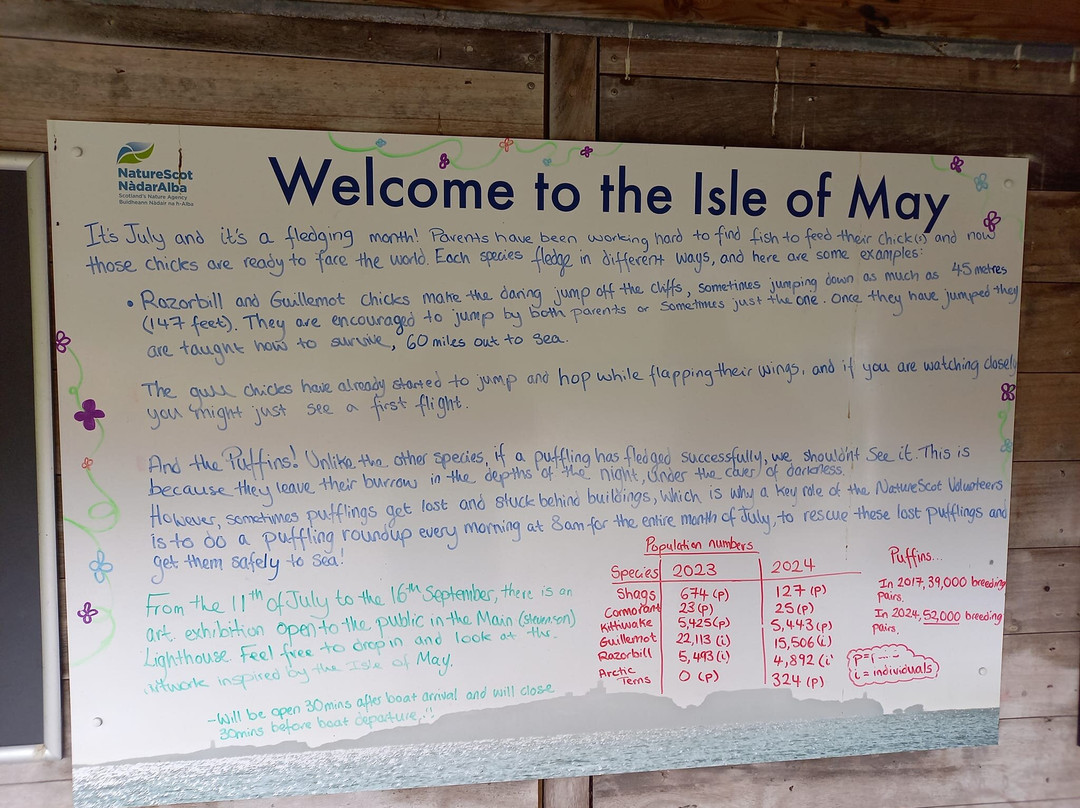 NatureScot
NàdarAlba
Scotland's Nature Agency
Buidheann Nàdair na h-Alba
Welcome to the Isle of May
It's July and it's a fledging month! Parents have been working hard to find fish to feed their chick(s) and now
those chicks are ready to face the world. Each species fledge in different ways, and here are some examples:
• Razorbill and Guillemot chicks make the daring jump off the cliffs, sometimes jumping down as much as 45 metres
(147 feet). They are encouraged to jump by both parents or sometimes just the one. Once they have jumped they
are taught how to survive, 60 miles out to sea.
The gull chicks have already started to jump and hop while flapping their wings, and if you are watching closely
you might just see a first flight.
And the Puffins! Unlike the other species, if a puffling has fledged successfully, we shouldn't see it. This is
because they leave their burrow in the depths of the night, under the cover of darkness.
However, sometimes pufflings get lost and stuck behind buildings, which is why a key role of the NatureScot Volunteers
is to do a puffling roundup every morning at 8am for the entire month of July, to rescue these lost pufflings and
get them safely to sea!
From the 11th of July to the 16th September, there is an
art exhibition open to the public in the Main (Stevenson)
Lighthouse. Feel free to drop in and look at the
artwork inspired by the Isle of May.
-Will be open 30mins after boat arrival and will close
30mins before boat departure!!
Population numbers
Species 2023 2024
Shags 674 (p) 127 (p)
Cormorant 23 (p) 25 (p)
Kittiwake 5,425 (p) 5,443 (p)
Guillemot 22,113 (i) 15,506 (i)
Razorbill 5,493 (i) 4,892 (i
Arctic
Terns 0 (p) 324 (p)
Puffins...
In 2017, 39,000 breeding
pairs.
In 2024, 52,000 breeding
pairs.
p=
i = individuals